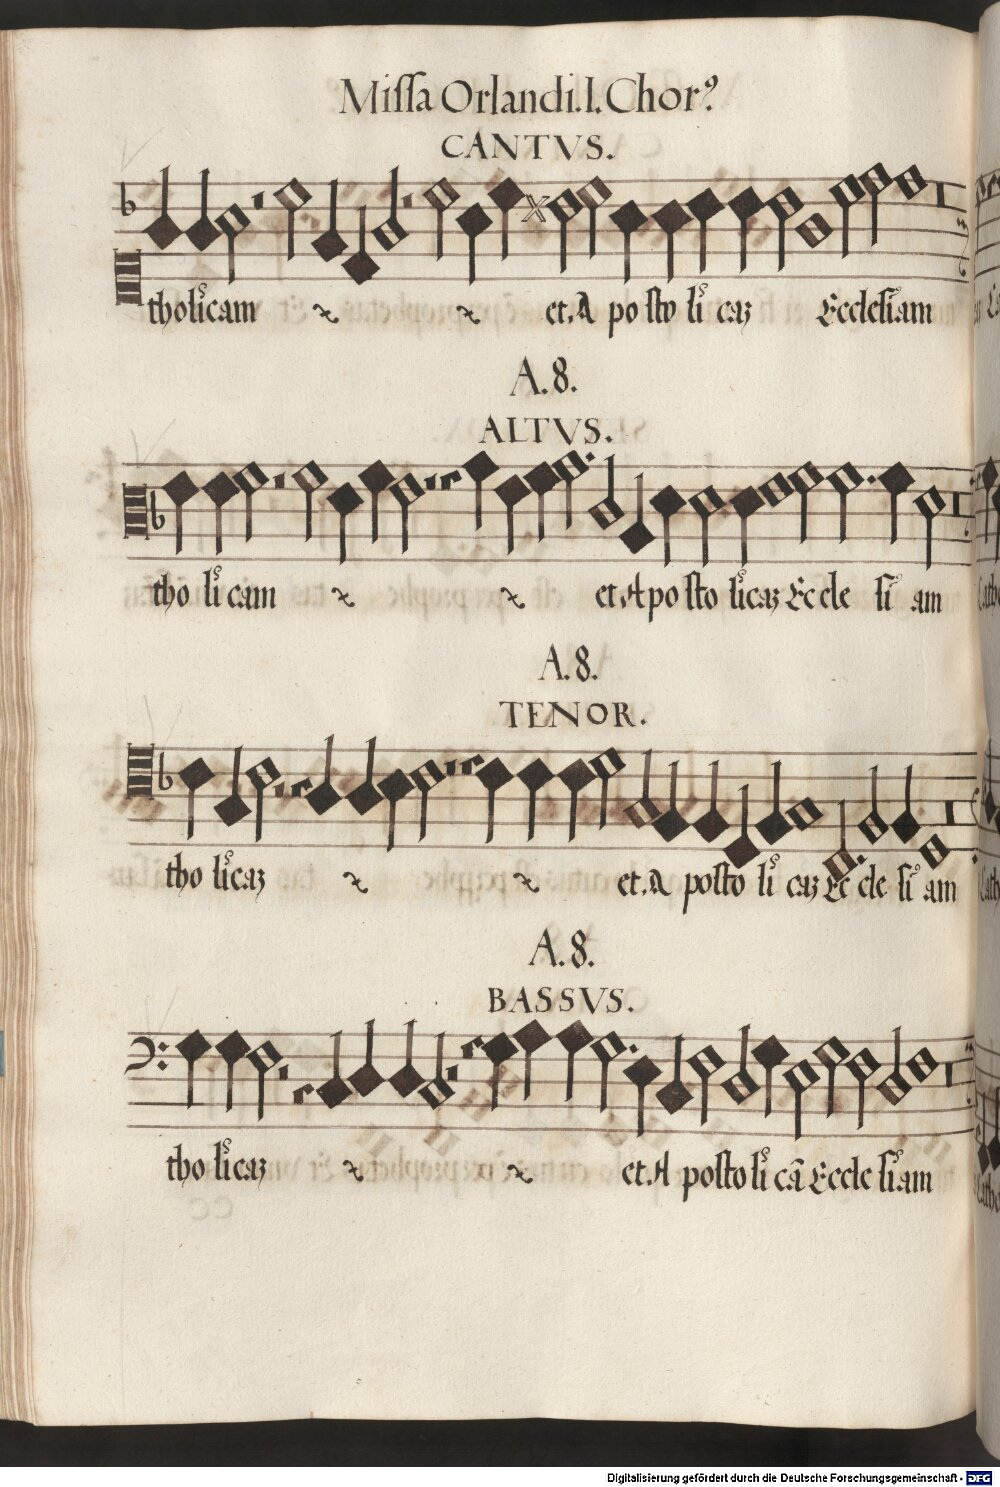 Missa Orlandi. I. Chor⁹
CANTVS.
tholicam et. A po sto li caʒ Ecclesiam
A. 8.
ALTVS.
tho li cam et A po sto licaʒ Ec cle si am
A. 8.
TENOR.
tho licaʒ et. A posto li caʒ Ec cle si am
A. 8.
BASSVS.
tho licaʒ et A posto li cā Eccle siam
Digitalisierung gefördert durch die Deutsche Forschungsgemeinschaft - DFG